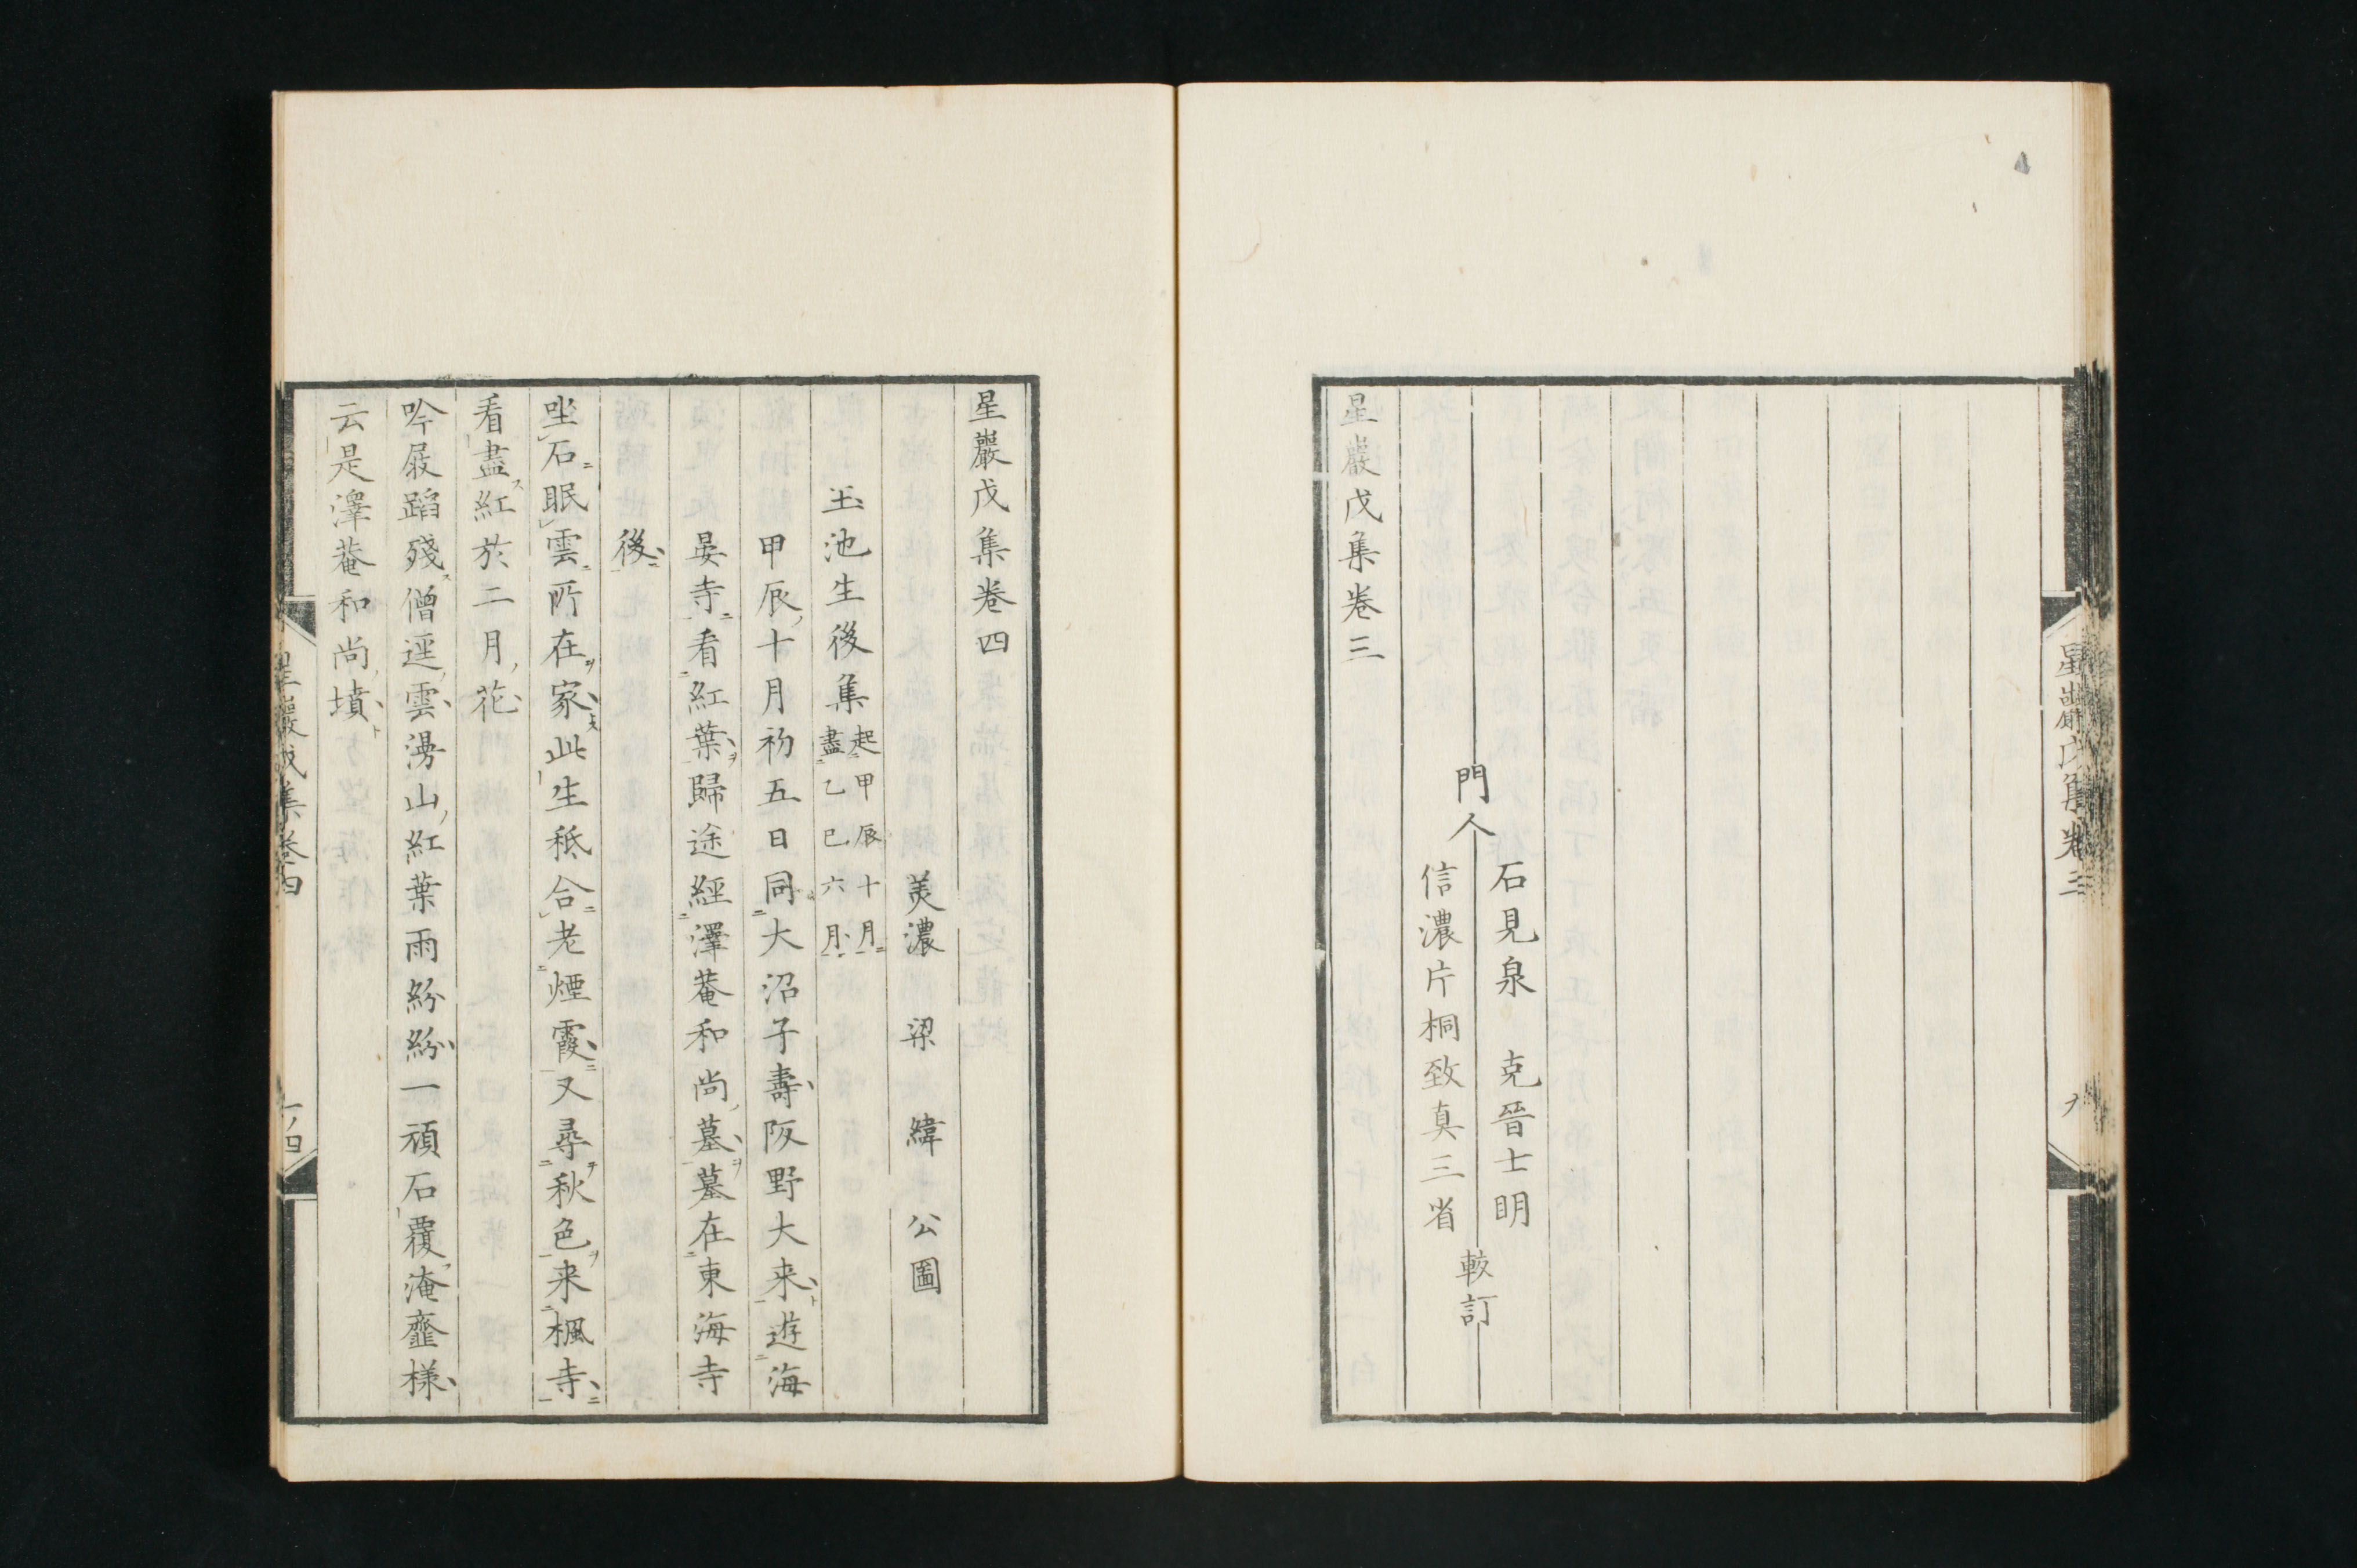 星巖戊集卷三
九
門人
石見泉 克晉士明
信濃片桐致真三省
較訂
星巖戊集卷三
星巖戊集卷四
美濃 梁 緯 公圖
玉池生後集
起甲辰十月
盡乙巳六月
甲辰十月初五日同大沼子壽阪野大来遊海
晏寺看紅葉歸途經澤菴和尚墓墓在東海寺
後
坐石眠雲所在家此生秪合老煙霞又尋秋色来楓寺
看盡紅於二月花
吟屐蹈殘僧逕雲湯山紅葉雨紛紛一頑石覆淹虀様
云是澤菴和尚墳
星巖戊集卷四
一ノ四